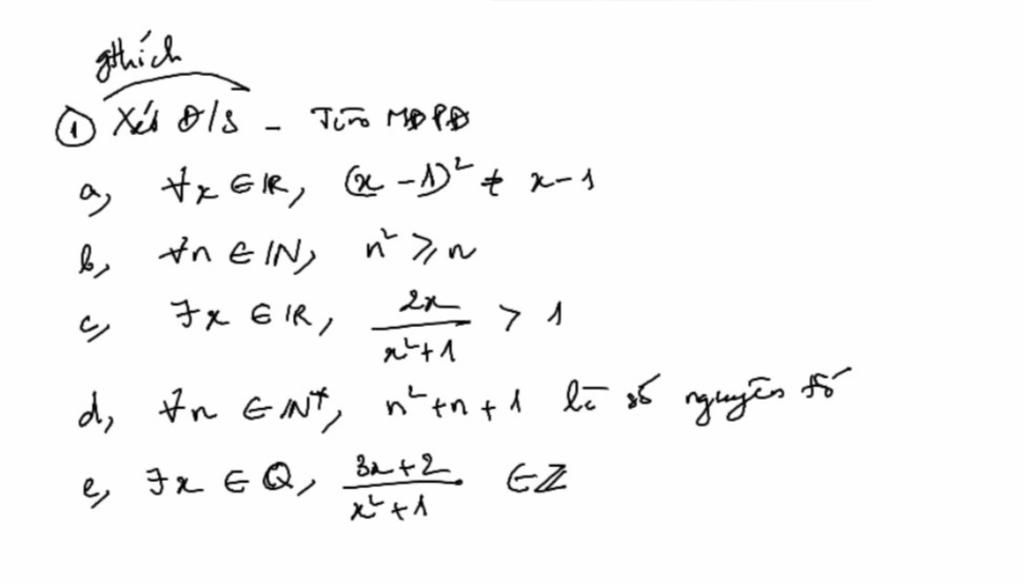 gthích
① Xét Đ/S - Tìm MĐPĐ
a, ∀x ∈ ℝ, (x - 1)² ≠ x - 1
b, ∀n ∈ ℕ, n² ⩾ n
c, ∃x ∈ ℝ, 2x/(x² + 1) > 1
d, ∀n ∈ ℕ*, n² + n + 1 là số nguyên tố
e, ∃x ∈ ℚ, (3x + 2)/(x² + 1) ∈ ℤ